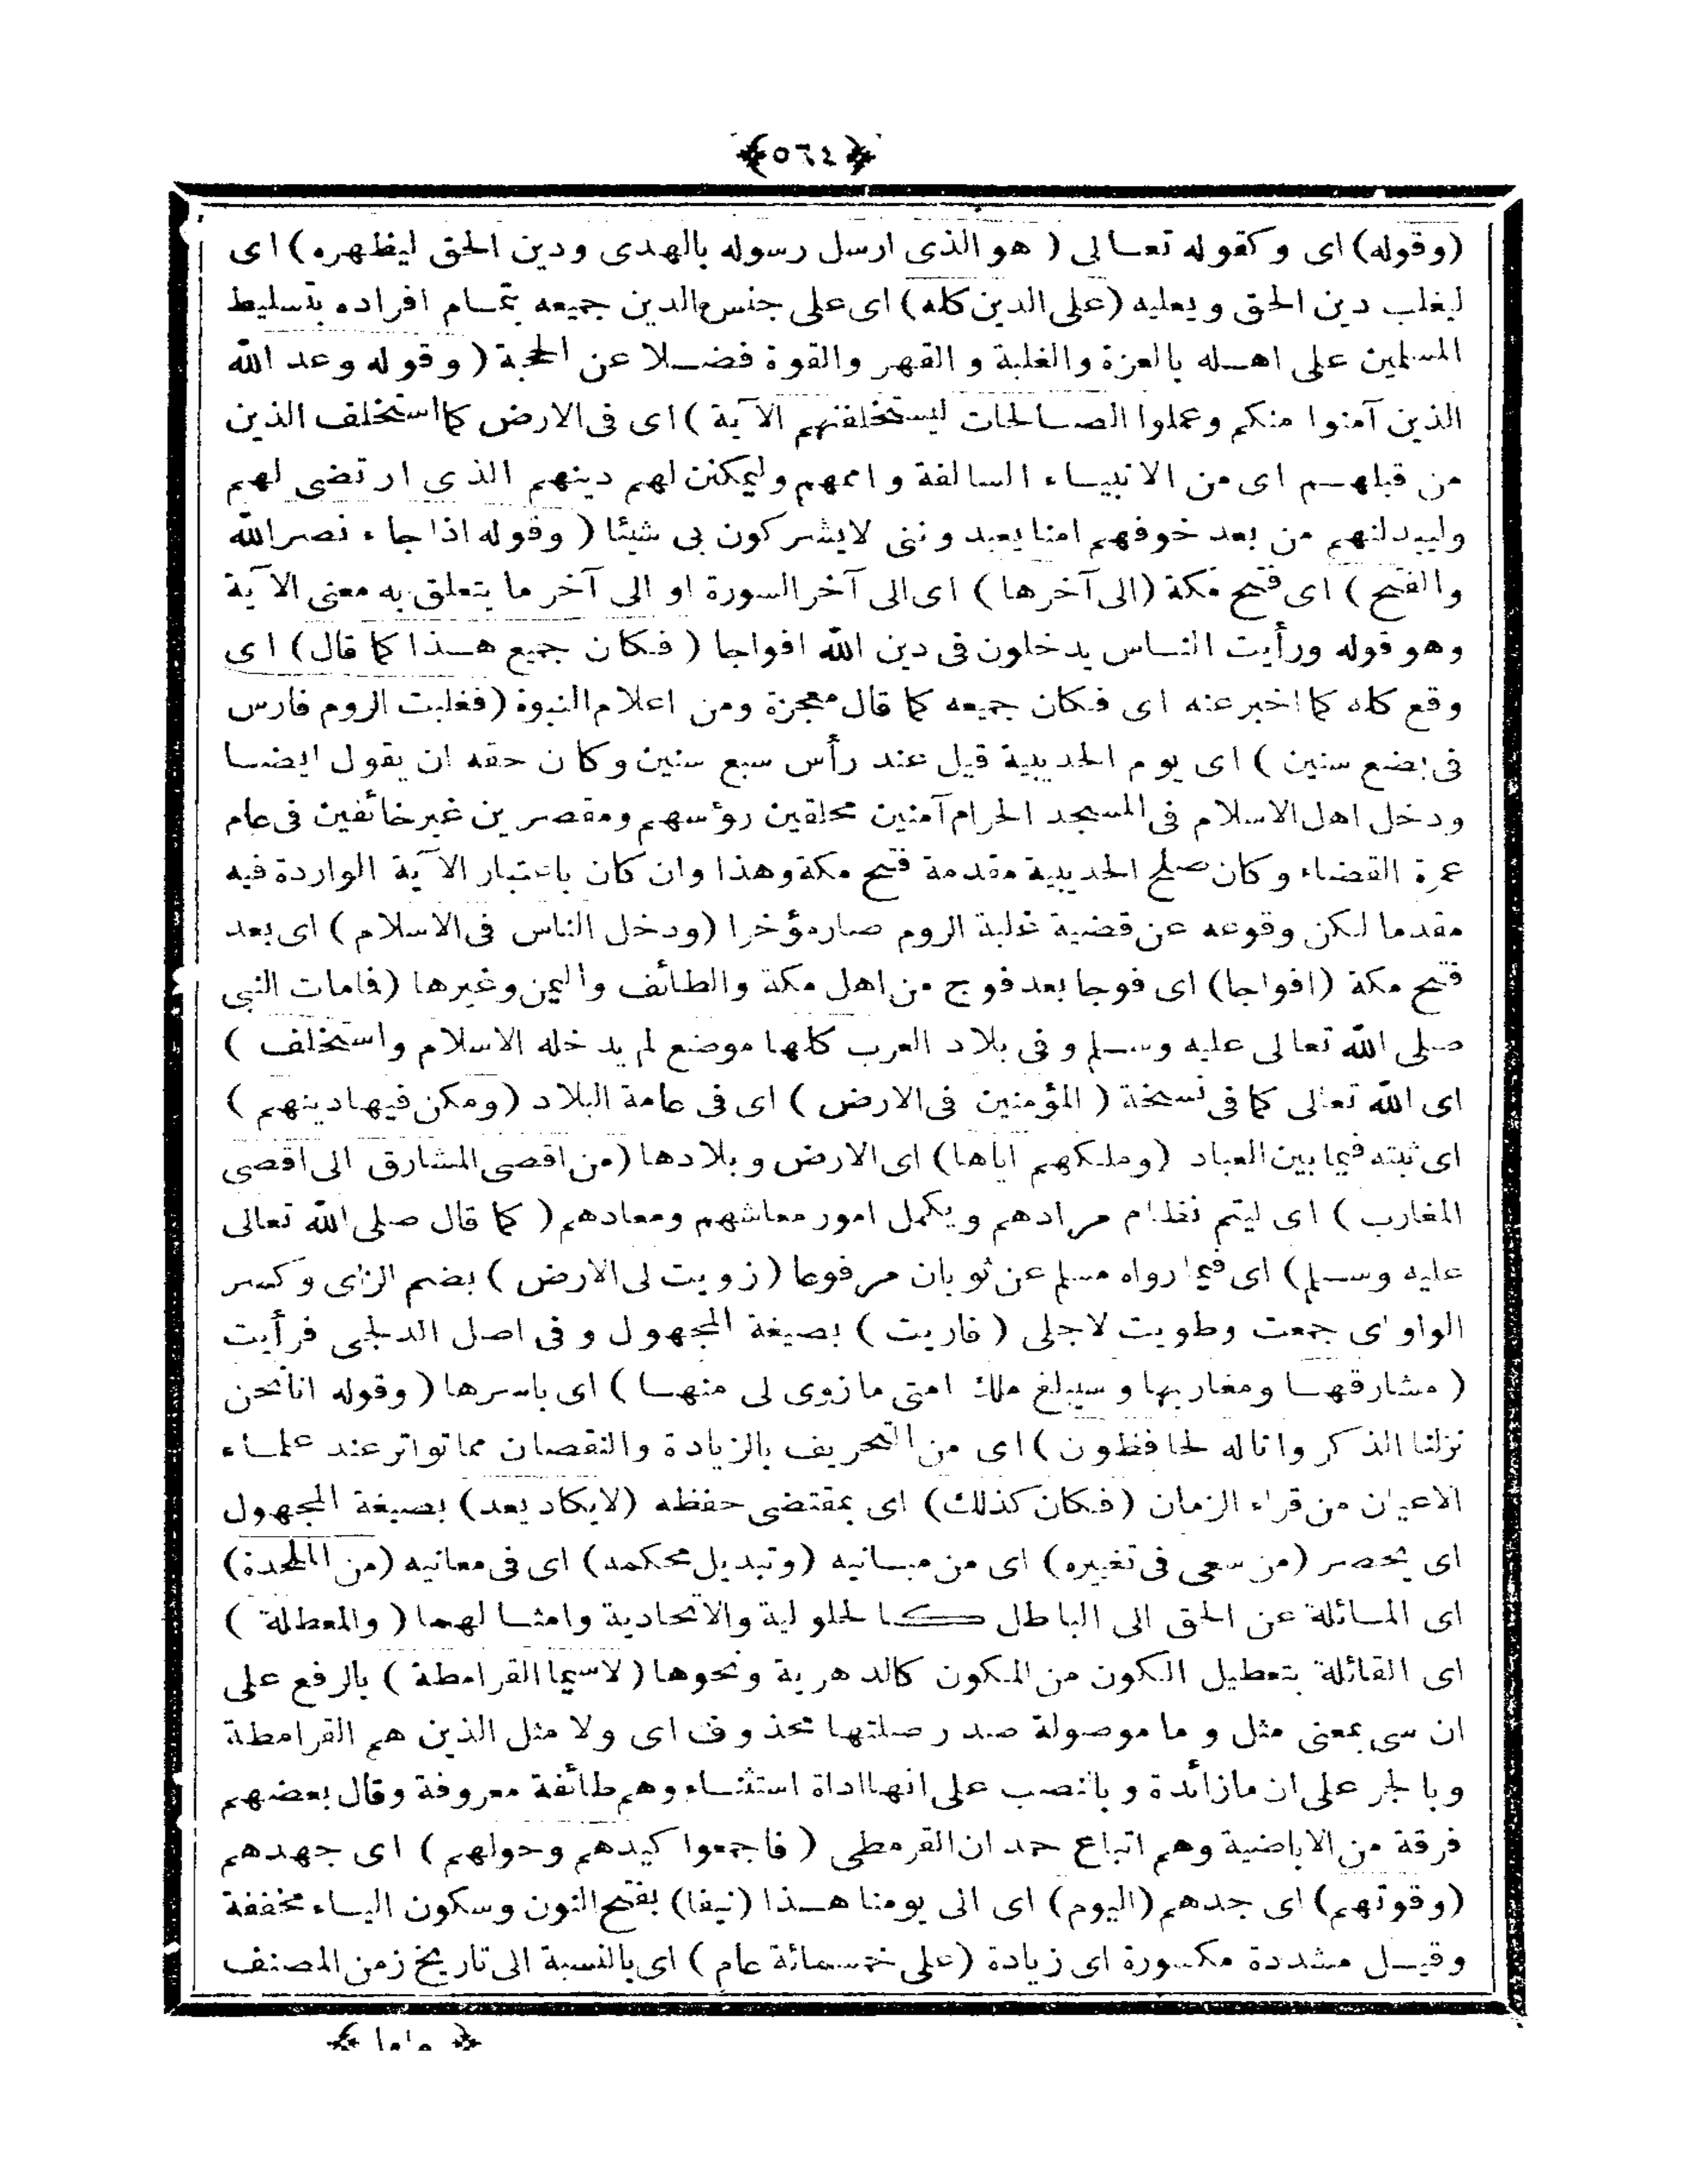 ﴿٥٦٤﴾
(وقوله) اى وكقوله تعالى (هو الذى ارسل رسوله بالهدى ودين الحق ليظهره) اى
ليغلب دين الحق ويعليه (على الدين كله) اى على جنس الدين جميعه بتمام افراده بتسليط
المسلمين على اهله بالعزة والغلبة والقهر والقوة فضلا عن الحجة (وقوله وعد الله
الذين آمنوا منكم وعملوا الصالحات ليستخلفنهم الآية) اى فى الارض كما استخلف الذين
من قبلهم اى من الانبياء السالفة واممهم وليمكنن لهم دينهم الذى ارتضى لهم
وليبدلنهم من بعد خوفهم امنا يعبدوننى لايشركون بى شيئا (وقوله اذا جاء نصر الله
والفتح) اى فتح مكة (الى آخرها) اى الى آخر السورة او الى آخر ما يتعلق به معنى الآية
وهو قوله ورأيت الناس يدخلون فى دين الله افواجا (فكان جميع هذا كما قال) اى
وقع كله كما اخبر عنه اى فكان جميعه كما قال معجزة ومن اعلام النبوة (فغلبت الروم فارس
فى بضع سنين) اى يوم الحديبية قيل عند رأس سبع سنين وكان حقه ان يقول ايضا
ودخل اهل الاسلام فى المسجد الحرام آمنين محلقين رؤسهم ومقصرين غير خائفين فى عام
عمرة القضاء وكان صلح الحديبية مقدمة فتح مكة وهذا وان كان باعتبار الآية الواردة فيه
مقدما لكن وقوعه عن قضية غلبة الروم صار مؤخرا (ودخل الناس فى الاسلام) اى بعد
فتح مكة (افواجا) اى فوجا بعد فوج من اهل مكة والطائف واليمن وغيرها (فامات النبى
صلى الله تعالى عليه وسلم وفى بلاد العرب كلها موضع لم يدخله الاسلام واستخلف)
اى الله تعالى كما فى نسخة (المؤمنين فى الارض) اى فى عامة البلاد (ومكن فيها دينهم)
اى ثبته فيما بين العباد (وملكهم اياها) اى الارض وبلادها (من اقصى المشارق الى اقصى
المغارب) اى ليتم نظام مرادهم ويكمل امور معاشهم ومعادهم (كما قال صلى الله تعالى
عليه وسلم) اى فيما رواه مسلم عن ثوبان مرفوعا (زويت لى الارض) بضم الزاى وكسر
الواو اى جمعت وطويت لاجلى (فاريت) بصيغة المجهول وفى اصل الدلجى فرأيت
(مشارقها ومغاربها وسيبلغ ملك امتى مازوى لى منها) اى باسرها (وقوله انا نحن
نزلنا الذكر وانا له لحافظون) اى من التحريف بالزيادة والنقصان مما تواتر عند علماء
الاعيان من قراء الزمان (فكان كذلك) اى بمقتضى حفظه (لايكاد يعد) بصيغة المجهول
اى يحصر (من سعى فى تغييره) اى من مبانيه (وتبديل محكمه) اى فى معانيه (من الملحدة)
اى المائلة عن الحق الى الباطل كالحلولية والاتحادية وامثالهما (والمعطلة)
اى القائلة بتعطيل الكون من المكون كالدهرية ونحوها (لاسيما القرامطة) بالرفع على
ان سى بمعنى مثل وما موصولة صدر صلتها محذوف اى ولا مثل الذين هم القرامطة
وبالجر على ان ما زائدة وبالنصب على انها اداة استثناء وهم طائفة معروفة وقال بعضهم
فرقة من الاباضية وهم اتباع حمدان القرمطى (فاجمعوا كيدهم وحولهم) اى جهدهم
(وقوتهم) اى جدهم (اليوم) اى الى يومنا هذا (نيفا) بفتح النون وسكون الياء مخففة
وقيل مشددة مكسورة اى زيادة (على خمسمائة عام) اى بالنسبة الى تاريخ زمن المصنف